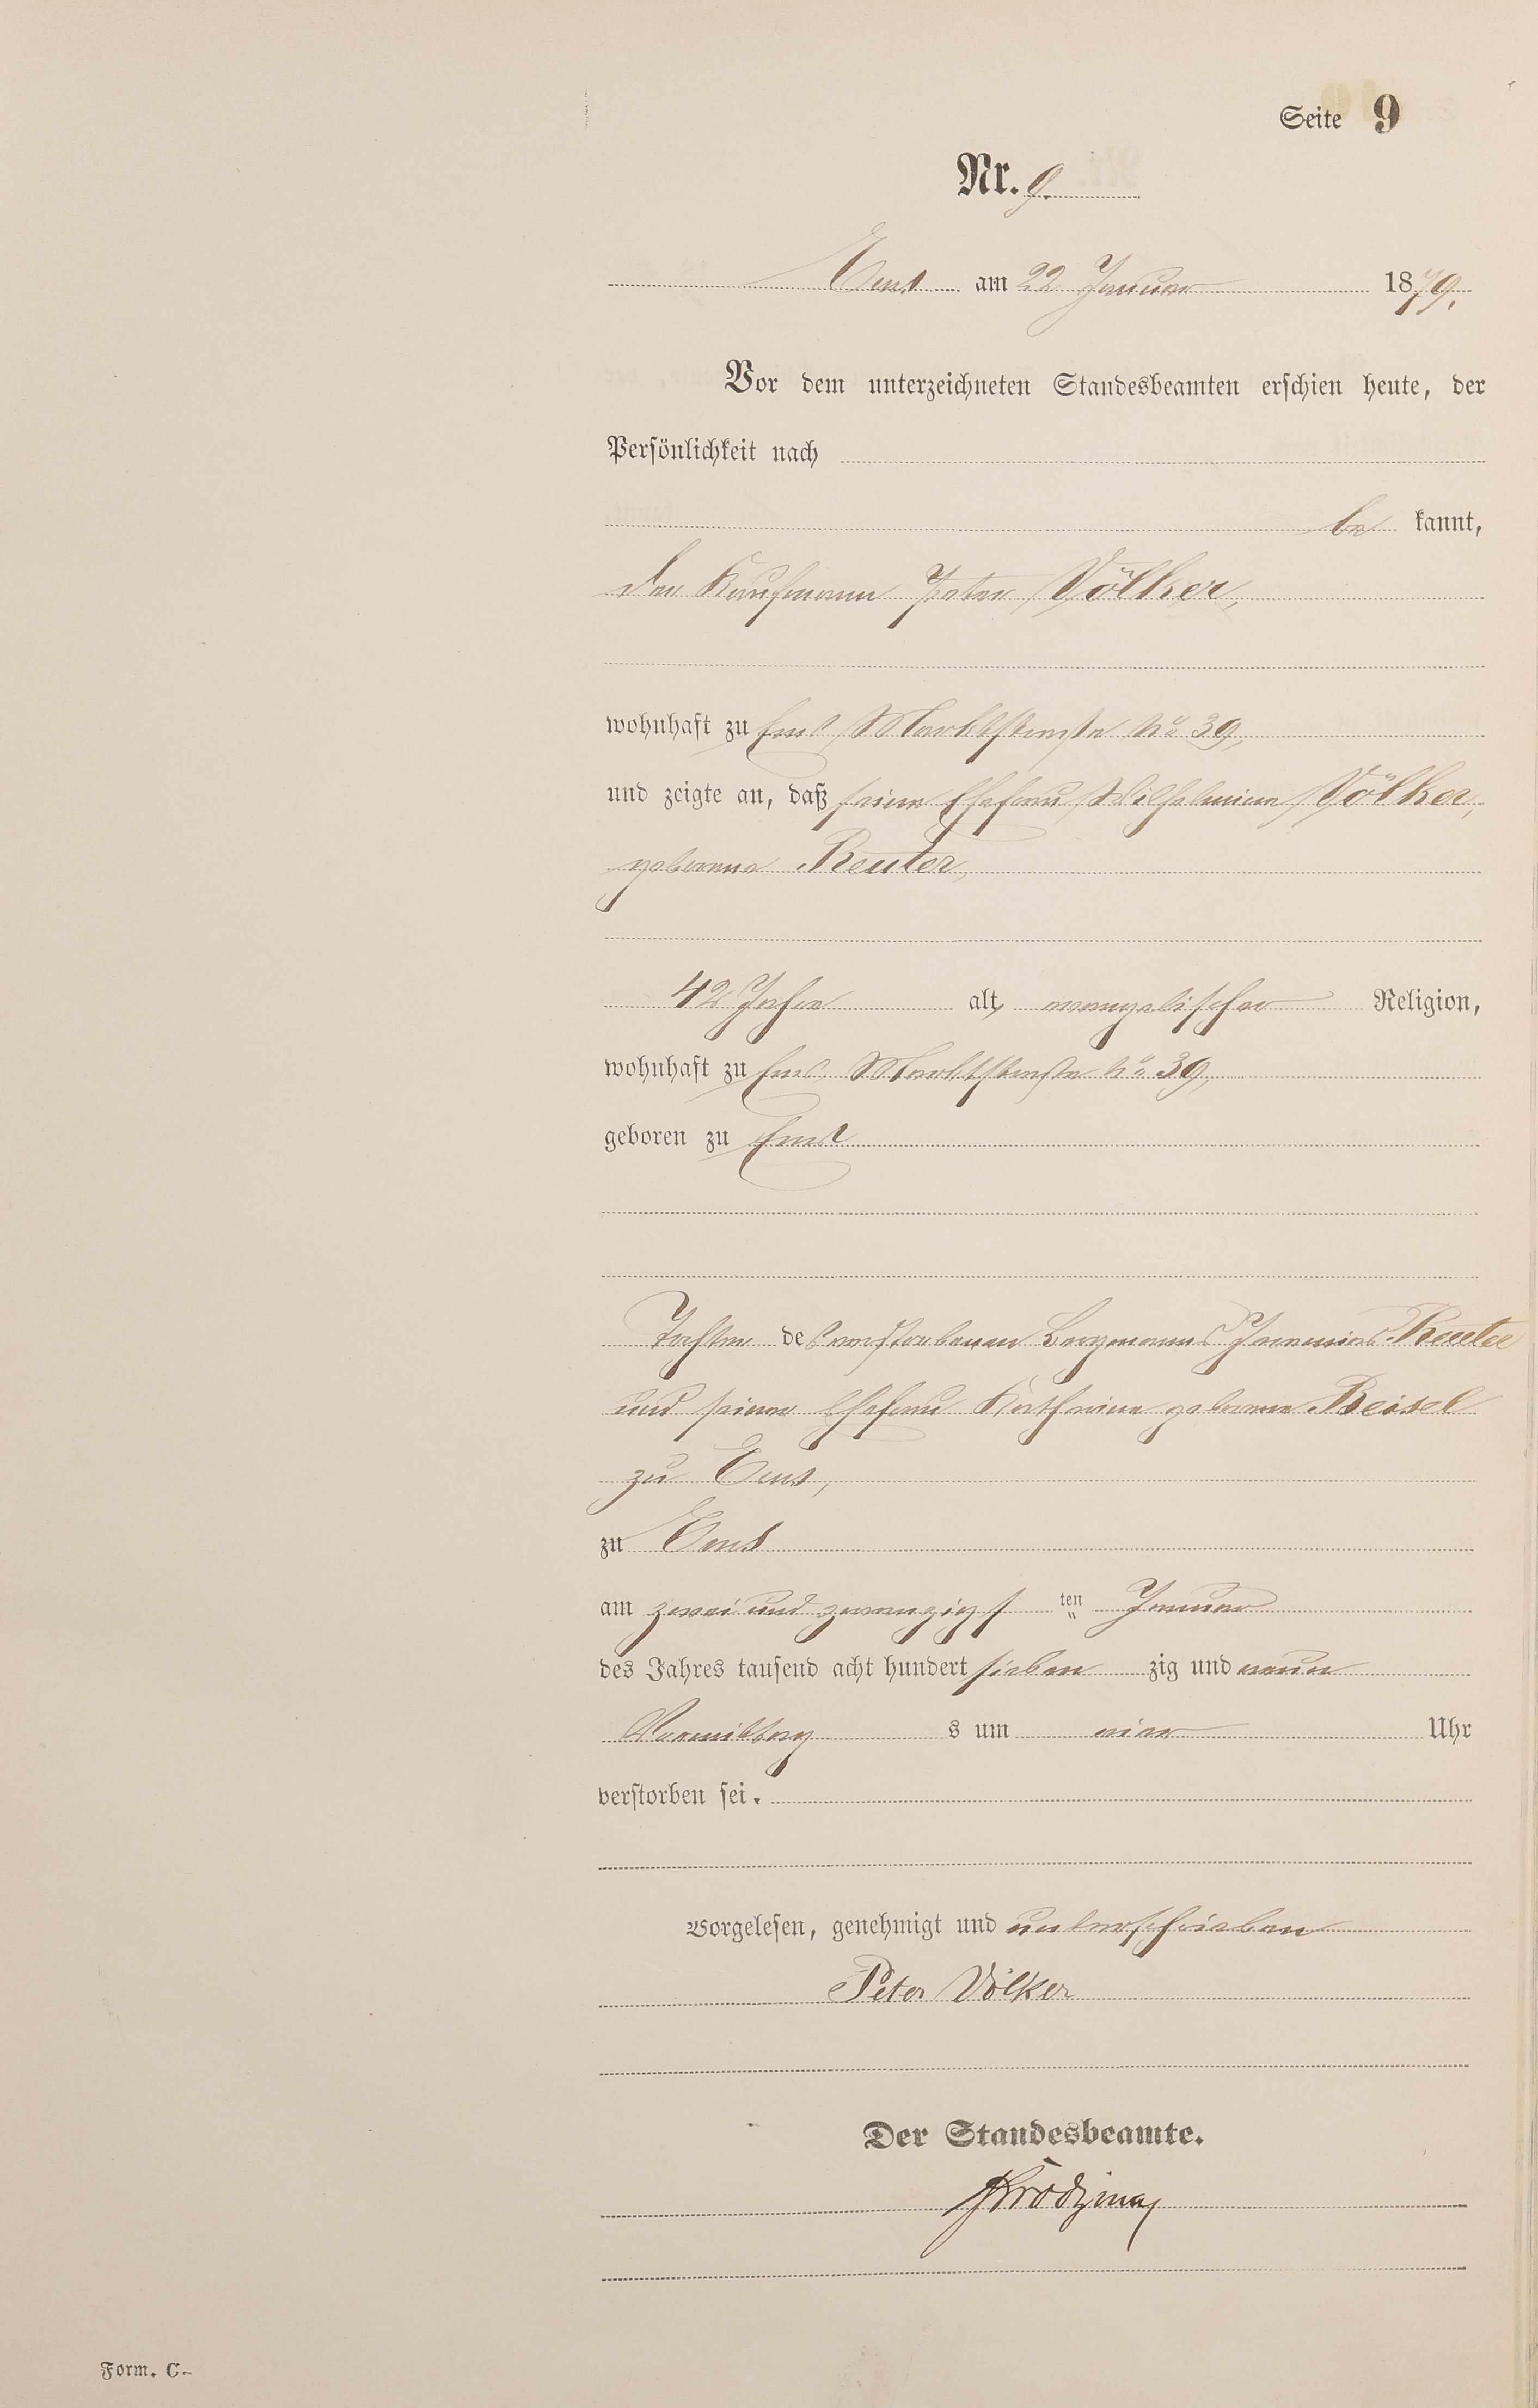 Seite 9
Nr. 9.
Ems am 22 Januar 1879.
Vor dem unterzeichneten Standesbeamten erschien heute, der
Persönlichkeit nach
be kannt,
der Kaufmann Peter Völker,
wohnhaft zu Ems, Marktstraße No 39,
und zeigte an, daß seine Ehefrau Wilhelmine Völker,
geborene Reuter,
42 Jahre alt, evangelischer Religion,
wohnhaft zu Ems, Marktstraße No 39,
geboren zu Ems
Tochter des verstorbenen Bergmanns Jeremias Reuter
und seiner Ehefrau Katharine geborene Beisel
zu Ems,
zu Ems
am zwei und zwanzigs ten Januar
des Jahres tausend acht hundert sieben zig und neun
Vormittag s um vier Uhr
verstorben sei.
Vorgelesen, genehmigt und unterschrieben
Peter Völker
Der Standesbeamte.
Form. C.